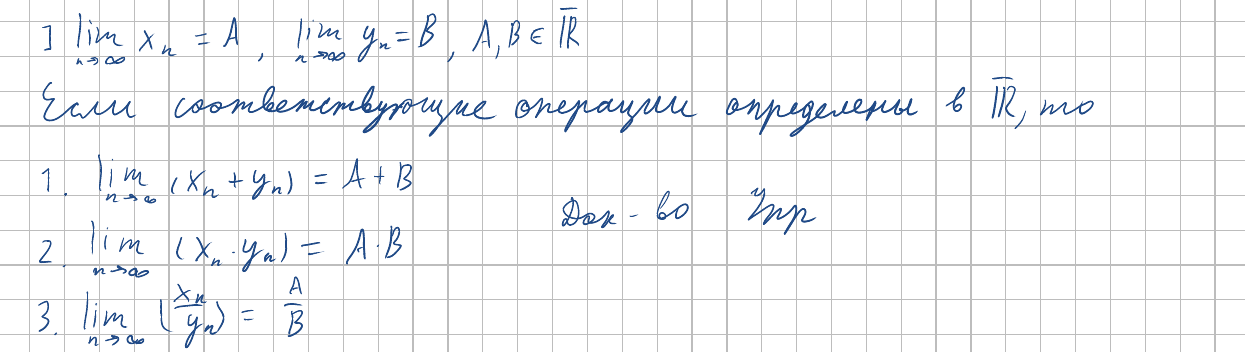 ] lim_{n→∞} x_n = A, lim_{n→∞} y_n = B, A, B ∈ ℝ̅
Если соответствующие операции определены в ℝ̅, то
1. lim_{n→∞} (x_n + y_n) = A + B
Док-во Упр
2. lim_{n→∞} (x_n · y_n) = A · B
3. lim_{n→∞} (x_n / y_n) = A / B